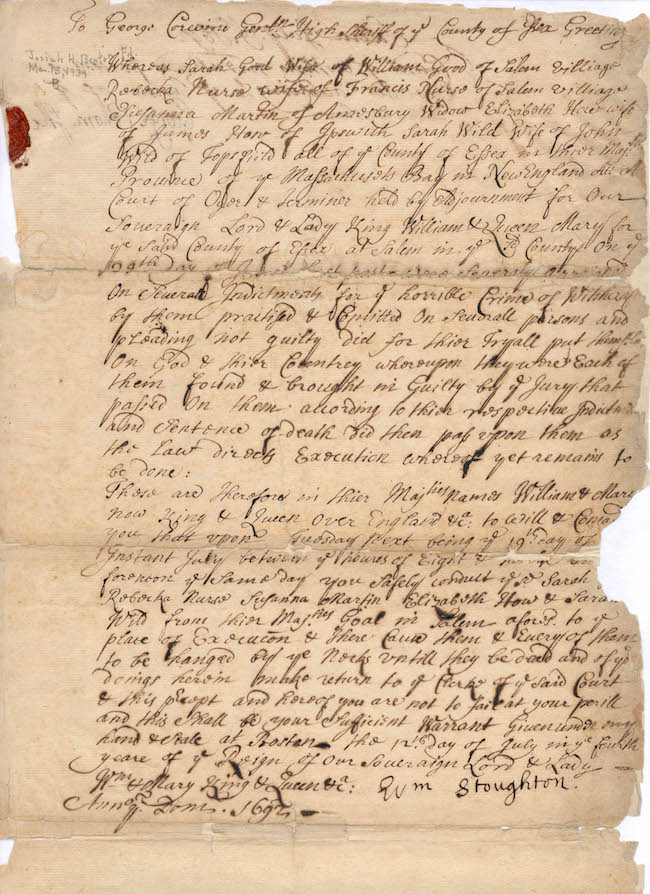 To George Corwine Gentlm High Sheriff of ye County of Essex Greeting
Whereas Sarah Good Wife of William Good of Salem Villiage
Rebecka Nurse wife of Francis Nurse of Salem Villiage
Susanna Martin of Amesbury Widow Elizabeth How wife
of James How of Ipswich Sarah Wild Wife of John
Wild of Topsfield all of ye County of Essex in thier Majts
Province of ye Massachusets Bay in New England Att A
Court of Oyer & Terminer held by Adjournment for Our
Soveraign Lord & Lady King William & Queen Mary for
ye said County of Essex at Salem in ye sd County on ye
29th day of
On Severall Indictments for ye horrible Crime of Witchcra
by them practised & Comitted On Severall persons and
pleading not guilty did for thier Tryall put themselves
On God & thier Countrey whereupon they were Each of
them found & brought in Guilty by ye Jury that
passed On them according to thier respective Indictm
and Sentence of death did then pass upon them as
the Law directs Execution whereof yet remains to
be done:
These are Therefore in thier Majties names William & Mary
now King & Queen over England &ca: to Will & Comand
you that upon Tuesday Next being ye 19th day of
Instant July between ye houres of Eight &
forenoon ye Same day you Safely conduct ye sd Sarah
Rebecka Nurse Susanna Martin Elizabeth How & Sarah
Wild from thier Majties Goal in Salem aforesd to ye
place of Execution & there Cause them & Every of them
to be hanged by ye Necks untill they be dead and of yr
doings herein make return to ye Clerke of ye Said Court
& this precept and hereof you are not to fail at your perill
and this Shall be your Sufficient Warrant Given under my
hand & Seale at Boston the 12th day of July in ye fourth
yeare of ye Reign of Our Soveraign Lord & Lady
Wm & Mary King & Queen &ca:
Wm Stoughton.
Annoq Dom. 1692